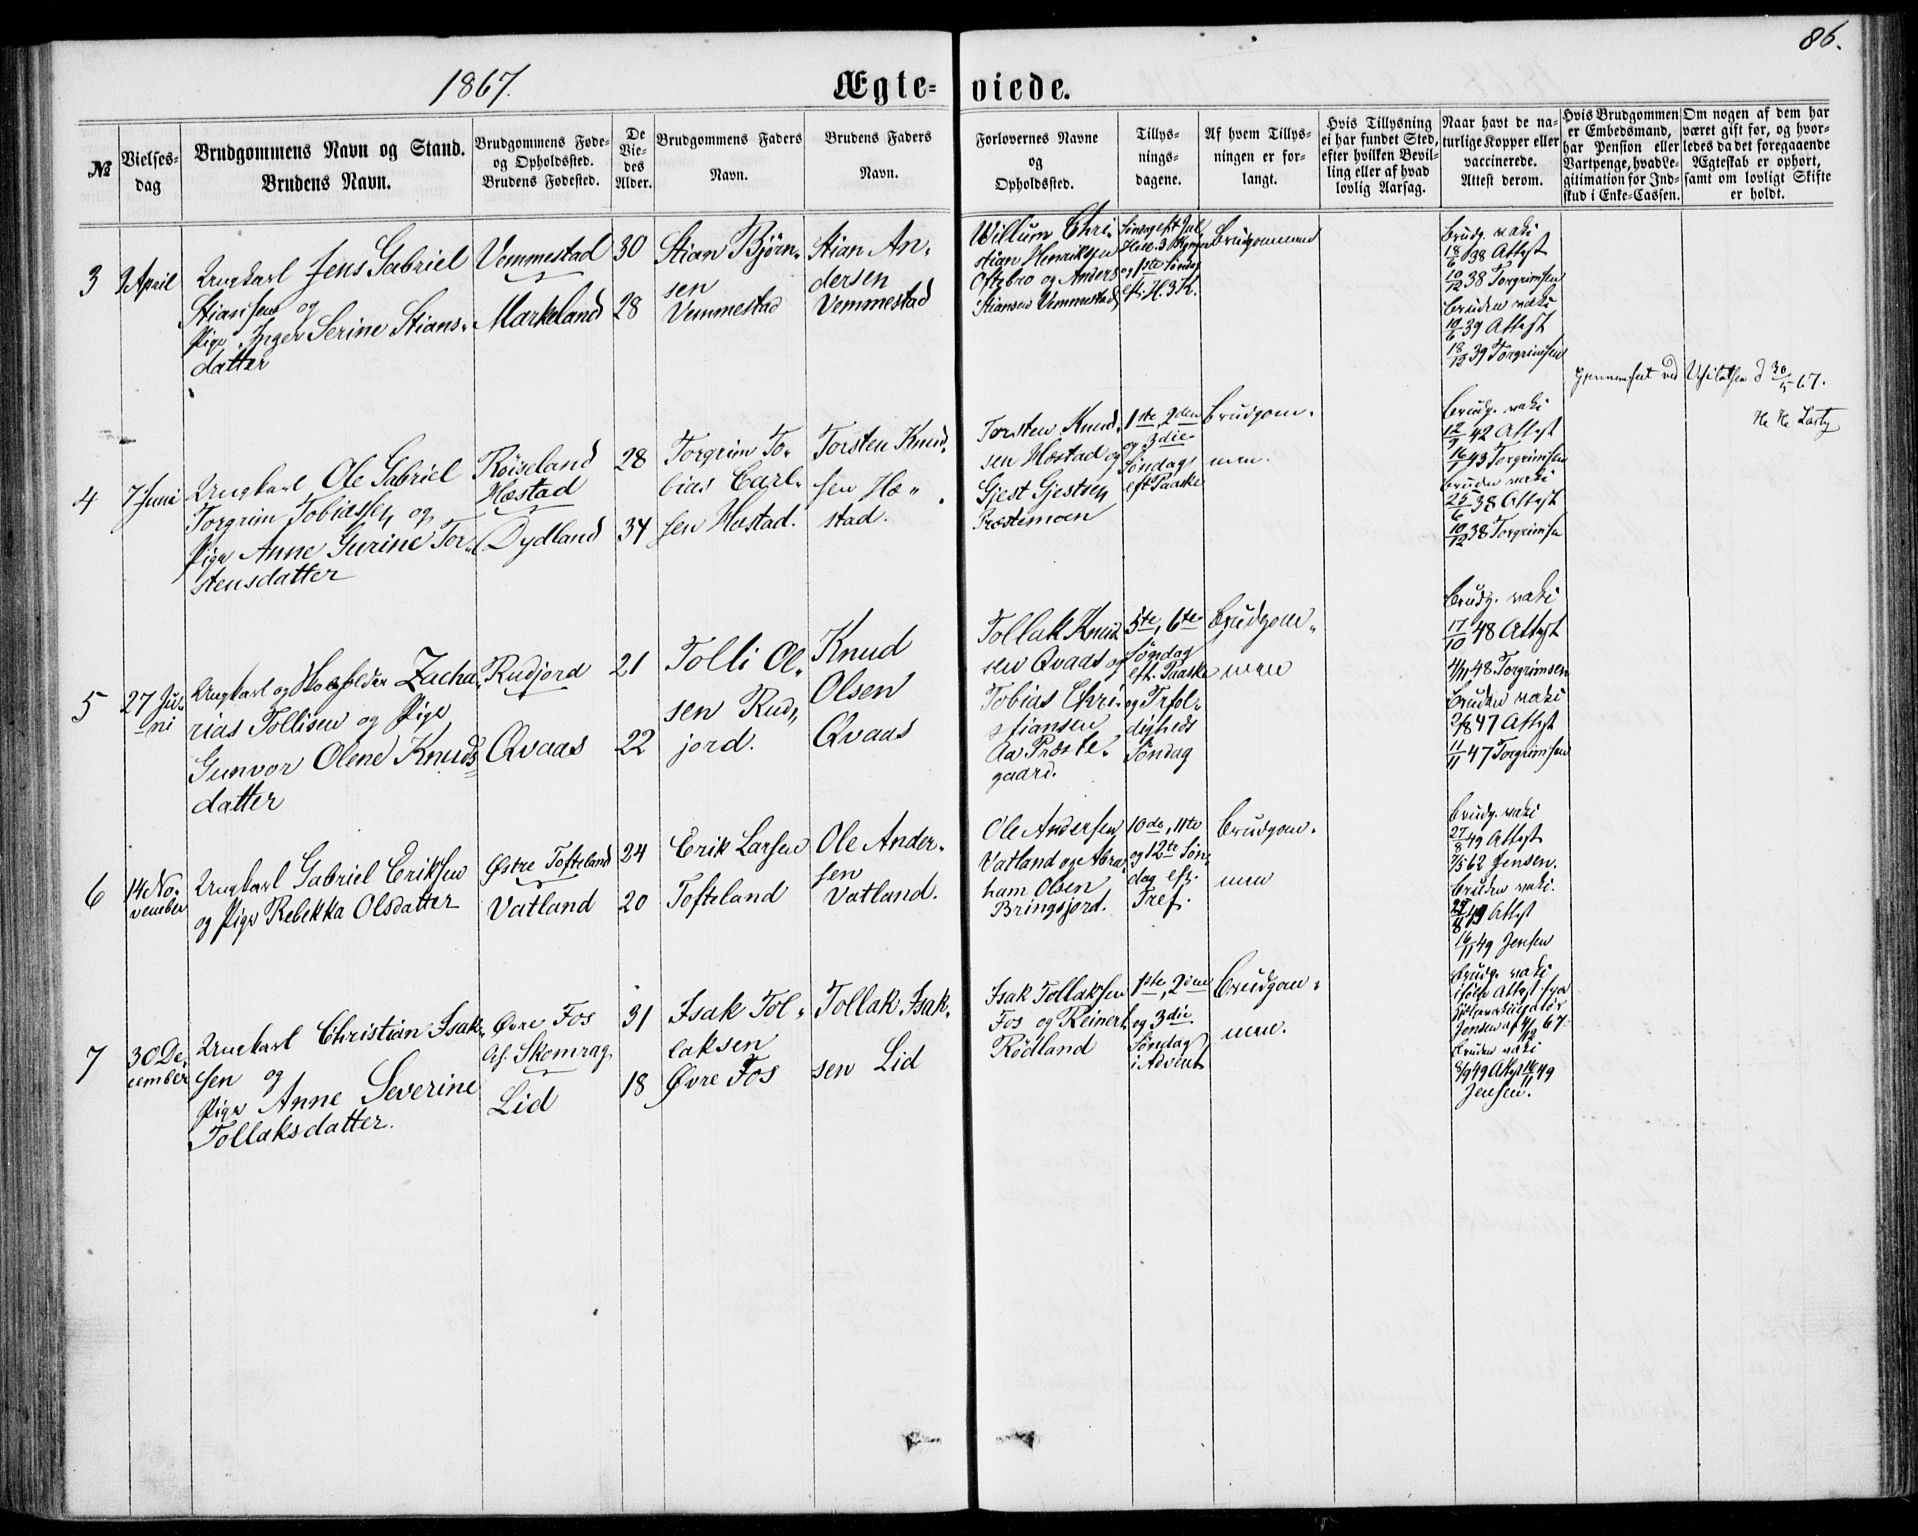 86.
1867.
Ægte=viede.
№
Vielses-
dag
Brudgommens Navn og Stand.
Brudens Navn.
Brudgommens Føde-
og Opholdssted.
Brudens Fødested.
De
Vie-
des
Alder.
Brudgommens Faders
Navn.
Brudens Faders
Navn.
Forlovernes Navne
og
Opholdssted.
Tillys-
nings-
dagene.
Af hvem Tillys-
ningen er for-
langt.
Hvis Tillysning
ei har fundet Sted,
efter hvilken Bevil-
ling eller af hvad
lovlig Aarsag.
Naar havt de na-
turlige Kopper eller
vaccinerede.
Attest derom.
Hvis Brudgommen
er Embedsmand,
har Pension eller
Vartpenge, hvad Le-
gitimation for Ind-
skud i Enke-Cassen.
Om nogen af dem har
været gift før, og hvor-
ledes da det foregaaende
Ægteskab er ophørt,
samt om lovligt Skifte
er holdt.
3
2 April
Ungkarl Jens Gabriel
Stiansen og
Pige Inger Serine Stians-
datter
Vemmestad
Markeland
30
28
Stian Bjørn-
sen
Vemmestad
Stian An-
dersen
Vemmestad
Willum Chri-
stian Henriksen
Oftebro og Anders
Stiansen Vemmestad
og 1ste Søndag
eft. H. 3 K.
Brudgommen
Brudg. vaki
18/6 38 Attest
10/12 38 Torgrimsen
Bruden vaki
10/6 39 Attest
18/12 39 Torgrimsen
Gjennemseet ved Visitatsen d 30/5 67.
4
7 Juni
Ungkarl Ole Gabriel
Torgrim Tobiassen og
Pige Anne Gurine Tor-
stensdatter
Røiseland
Hæstad
Dydland
28
34
Torgrim To-
bias Carl-
sen Hæstad.
Torsten Knud-
sen Hæ-
stad.
Torsten Knud-
sen Hæstad og
Gjest Gjestsen
Præstemoen
1ste, 2den
og 3die
Søndag
eft Paaske
Brudgom-
men.
Brudg. vaki
12/9 42 Attest
16/1 43 Torgrimsen
Bruden vaki
25/6 38 Attest
10/12 38 Torgrimsen
5
27 Ju-
ni
Ungkarl og Zacha-
rias Tollisen og Pige
Gunvor Olene Knuds-
datter
Rudjord
Qvaas
21
22
Tolli Ol-
sen Rud-
jord.
Knud
Olsen
Qvaas
Tollak Knud-
sen Qvaas og
Tobias Chri-
stiansen
Aa Præste-
gaard.
5te, 6te
Søndag
eft. Paaske
og Trfol-
digheds
Søndag
Brudgom-
men
Brudg. vaki
17/10 48 Attest
4/11 48 Torgrimsen
Bruden vaki
2/8 47 Attest
11/11 47 Torgrimsen
6
14 No-
vember
Ungkarl Gabriel Eriksen
og Pige Rebekka Olsdatter
Østre Tofteland
Vatland
24
20
Erik Larsen
Tofteland
Ole Ander-
sen
Vatland.
Ole Andersen
Vatland og Abra-
ham Olsen
Bringsjord.
10de, 11te
og 12te Søn-
dag eft.
Tref.
Brudgom-
men
Brudg. vaki
27/8 49 Attest
7/5 62 Jensen.
Bruden vaki.
49 Attest
16/11 49 Jensen
7
30 De-
cember
Ungkarl Christian Isak-
sen og
Pige Anne Severine
Tollaksdatter.
Øvre Fos
Skomrag
Lid
31
18
Isak Tol-
laksen
Øvre Fos
Tollak Isak-
sen Lid
Isak Tollaksen
Fos og Reinert
Rødland
1ste, 2den
og 3die
Søndag
i Advent
Brudgom-
men.
Brudg. vaki
ifølge Attest fra
Jensen af 4/12 67.
Bruden vaki
8/9 49 Attest 16/11 49
Jensen.